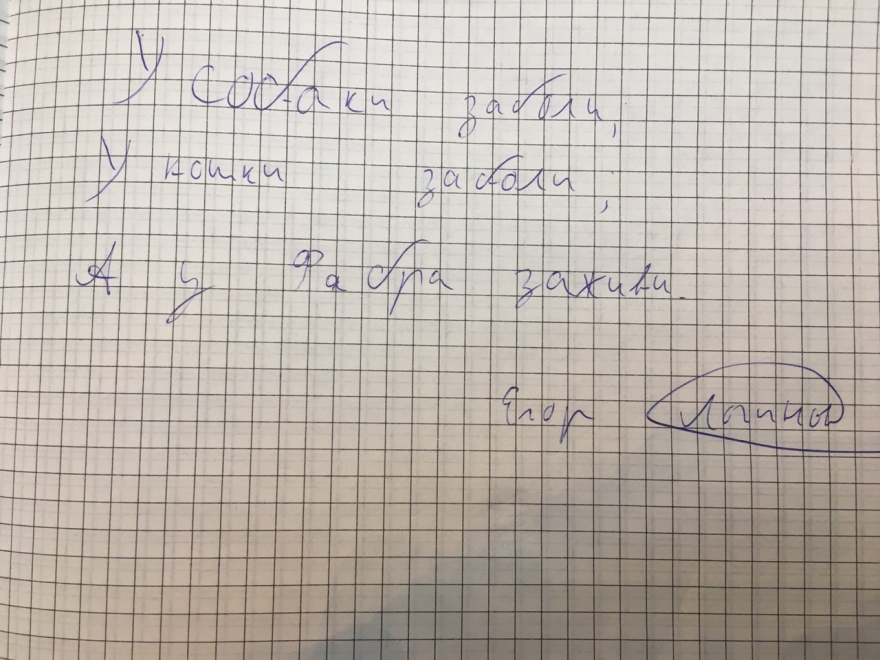 У собаки заболи,
У кошки заболи,
А у Фабра заживи.
Егор Логинов